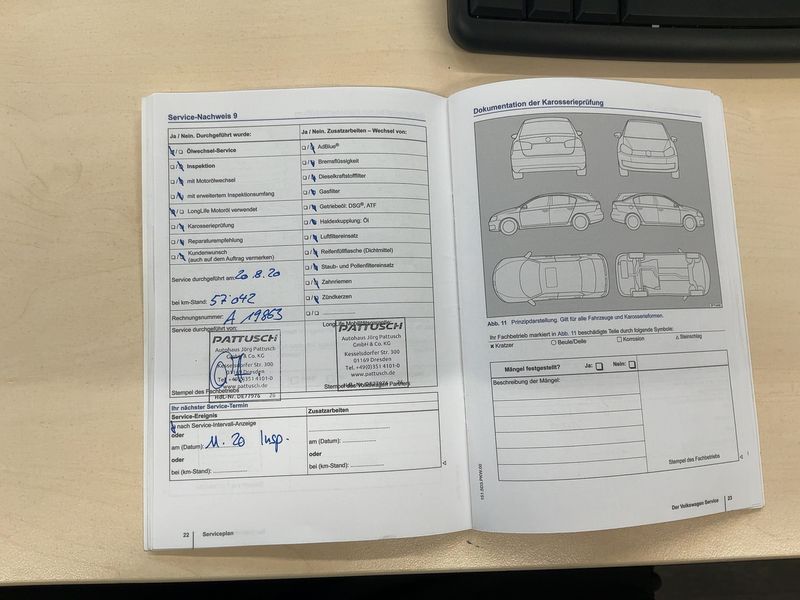 Service-Nachweis 9
Ja / Nein. Durchgeführt wurde:
Ölwechsel-Service
Inspektion
mit Motorölwechsel
mit erweitertem Inspektionsumfang
LongLife Motoröl verwendet
Karosserieprüfung
Reparaturempfehlung
Kundenwunsch
(auch auf dem Auftrag vermerken)
Service durchgeführt am: 20.8.20
bei km-Stand: 57042
Rechnungsnummer: A 19863
Service durchgeführt von:
PATTUSCH
Autohaus Jörg Pattusch
GmbH & Co. KG
Kesselsdorfer Str. 300
01169 Dresden
Tel. +49(0)351 4101-0
www.pattusch.de
Hdl.-Nr. DE77974 26
Stempel des Fachbetriebs
Ja / Nein. Zusatzarbeiten – Wechsel von:
AdBlue®
Bremsflüssigkeit
Dieselkraftstofffilter
Gasfilter
Getriebeöl: DSG®, ATF
Haldexkupplung: Öl
Luftfiltereinsatz
Reifenfüllflasche (Dichtmittel)
Staub- und Pollenfiltereinsatz
Zahnriemen
Zündkerzen
PATTUSCH
Autohaus Jörg Pattusch
GmbH & Co. KG
Kesselsdorfer Str. 300
01169 Dresden
Tel. +49(0)351 4101-0
www.pattusch.de
Hdl.-Nr. DE77974 26
Stempel des Volkswagen Partners
Ihr nächster Service-Termin
Service-Ereignis
nach Service-Intervall-Anzeige
oder
am (Datum): 11.20 Insp.
oder
bei (km-Stand):
Zusatzarbeiten
am (Datum):
oder
bei (km-Stand):
22 Serviceplan
Dokumentation der Karosserieprüfung
Abb. 11 Prinzipdarstellung. Gilt für alle Fahrzeuge und Karosserieformen.
Ihr Fachbetrieb markiert in Abb. 11 beschädigte Teile durch folgende Symbole:
Kratzer
Beule/Delle
Korrosion
Steinschlag
Mängel festgestellt? Ja: Nein:
Beschreibung der Mängel:
Stempel des Fachbetriebs
Der Volkswagen Service 23